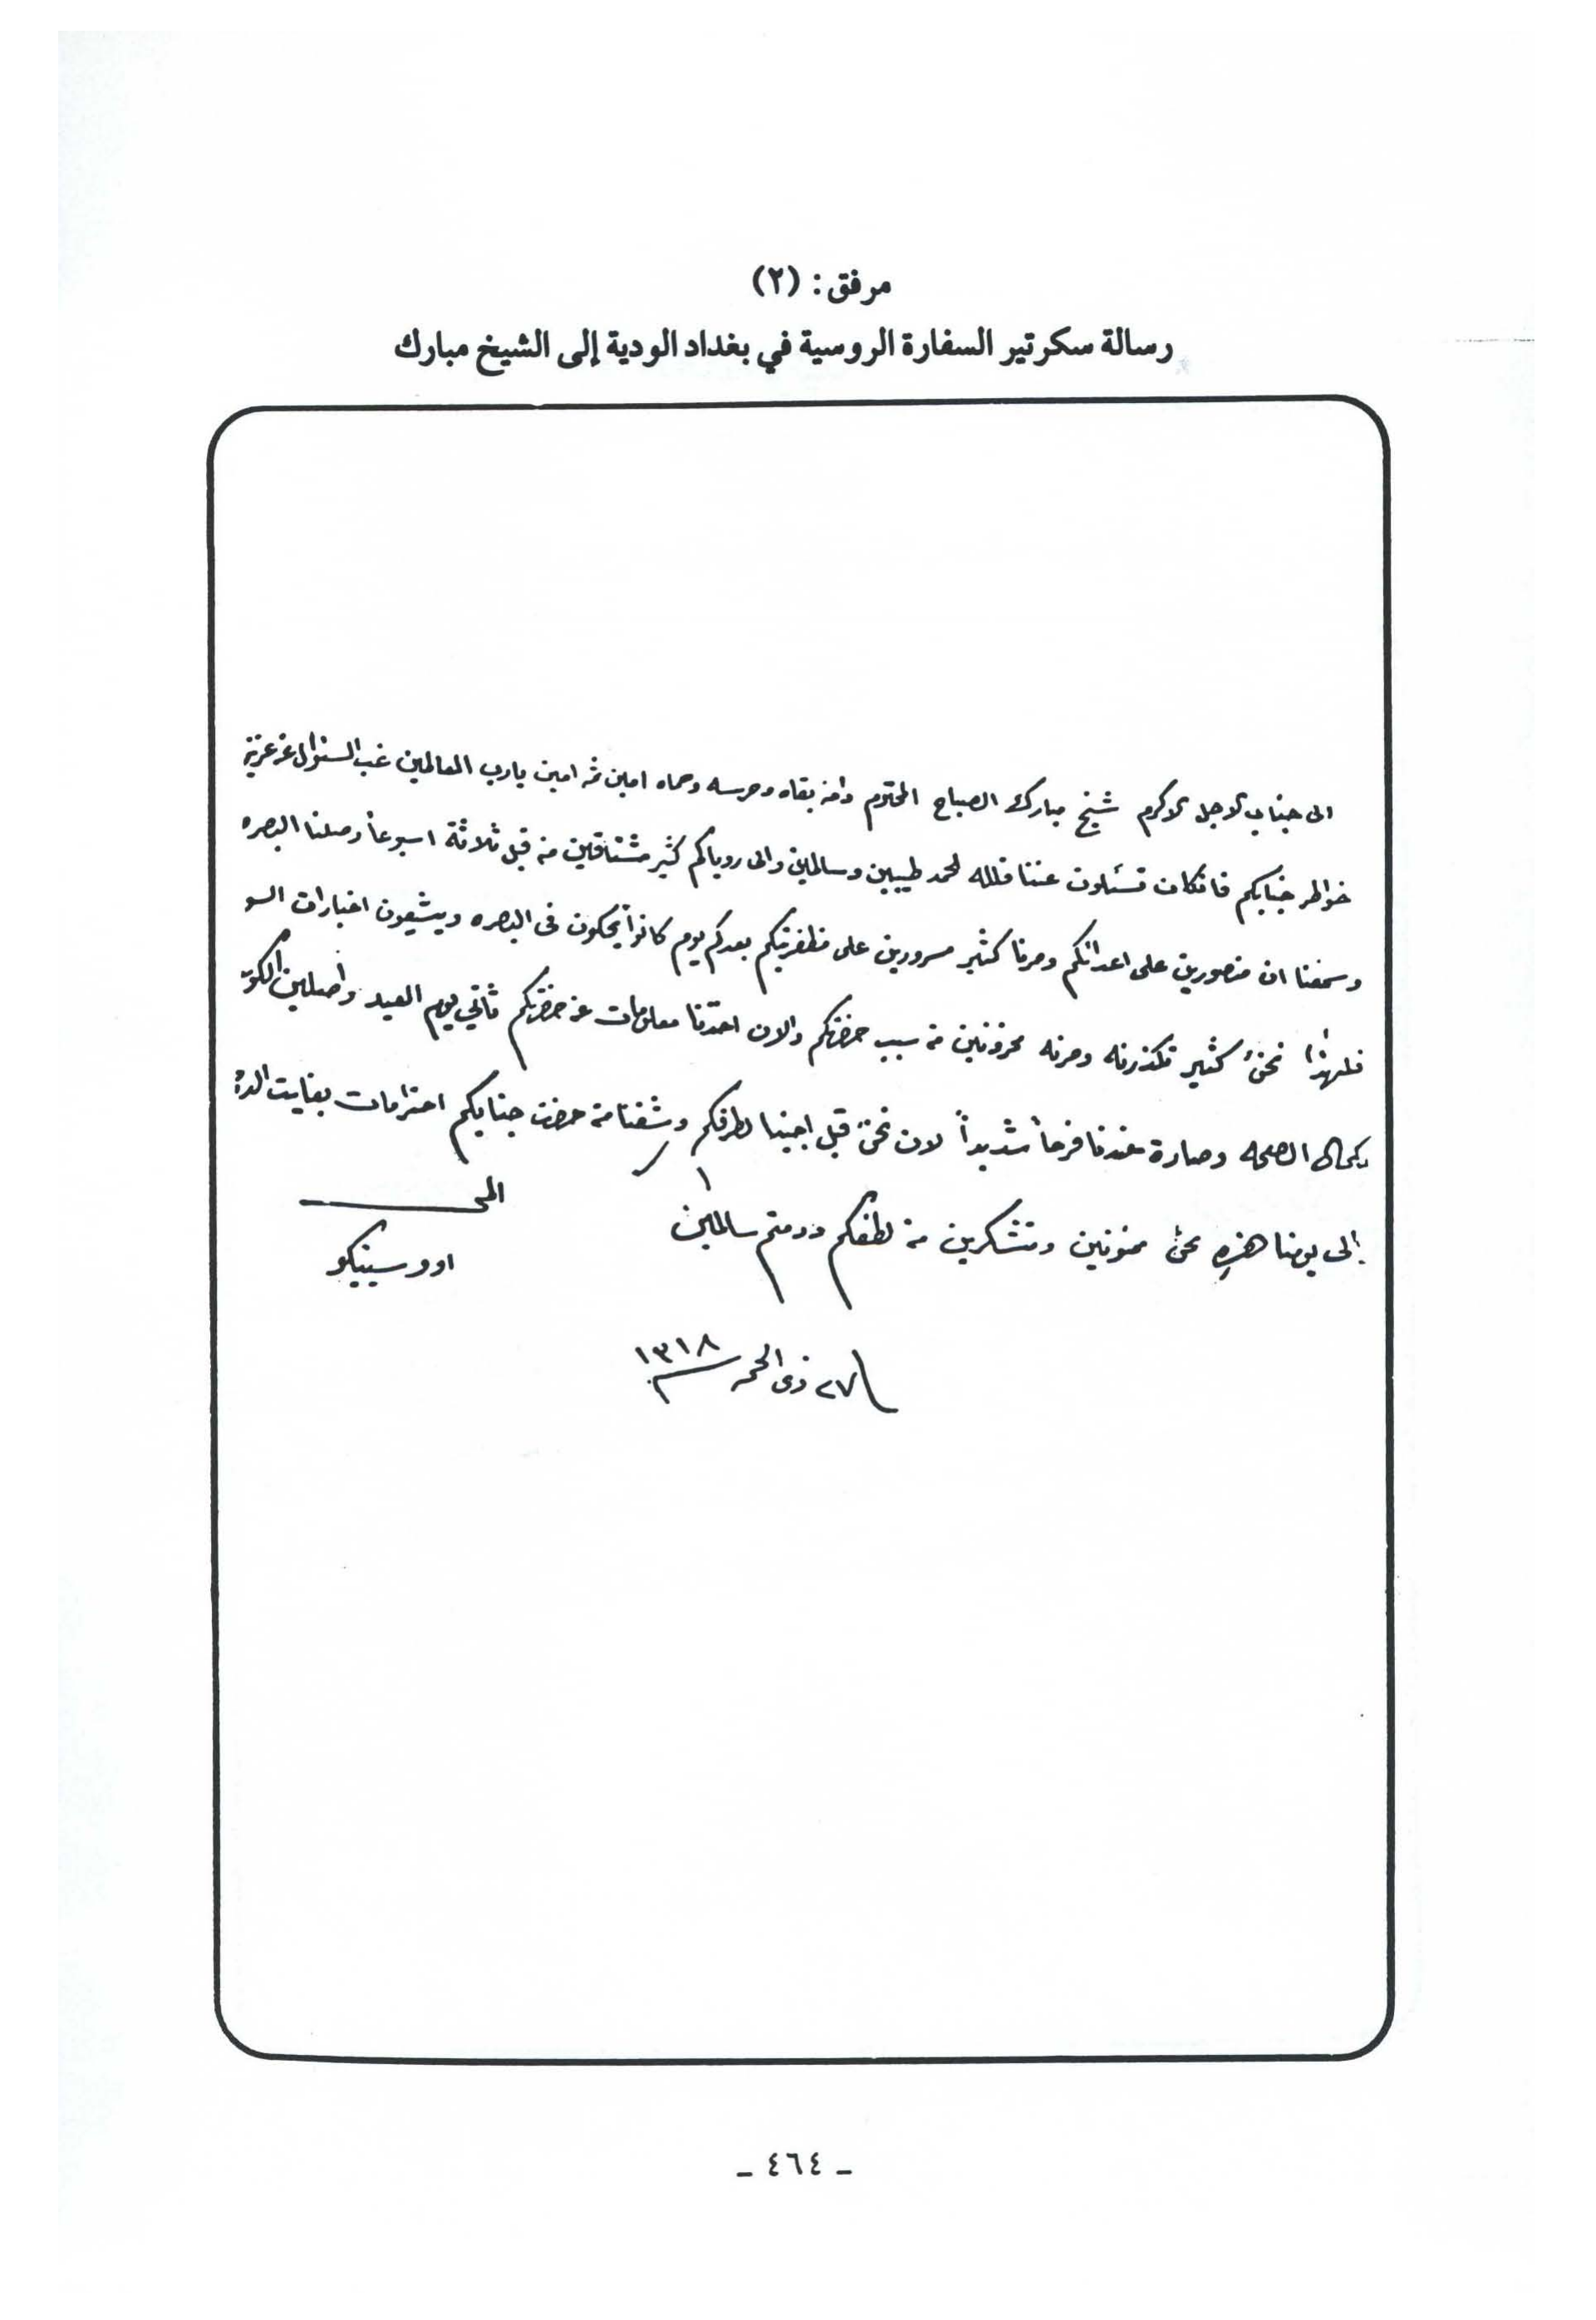 مرفق: (٢)
رسالة سكرتير السفارة الروسية في بغداد الودية إلى الشيخ مبارك
الى جناب الاجل الاكرم شيخ مبارك الصباح المحترم دامه بقاه وحرسه وحماه امين ثم امين يارب العالمين غب السئوال عن عزيز
خواطر جنابكم فانكان تسئلون عننا فلله لحمد طيبين وسالمين والى روياكم كثير مشتاقين من قبل ثلاثة اسبوعاً وصلنا البصره
وسمعنا ان منصورين على اعدائكم وصرنا كثير مسرورين على مظفريتكم بعدكم يوم كانوا يحكون فى البصره ويشيعون اخبارات السو
فلهذا نحن كثير تكذرنه وصرنه محزونين من سبب حضرتكم والان اخذنا معلومات عن حضرتكم ثاني يوم العيد واصلين الكوت
بكمال الصحه وصارة عندنا فرحاً شديداً لان نحن قبل اجينا لطرفكم وشفنا من حضرت جنابكم احترامات بغايت
الى يومنا هذه نحن ممنونين ومتشكرين من لطفكم ودمتم سالمين
اوو سينيكو
٢٧ ذى الحجـ ١٣١٨
ـ ٤٦٤ ـ